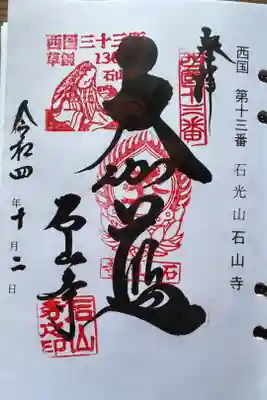 西国 第十三番 石光山 石山寺
奉拝
西国十三番
西国三十三所
草創1300年
石山寺
大伽藍
石山寺
令和四年十月二日